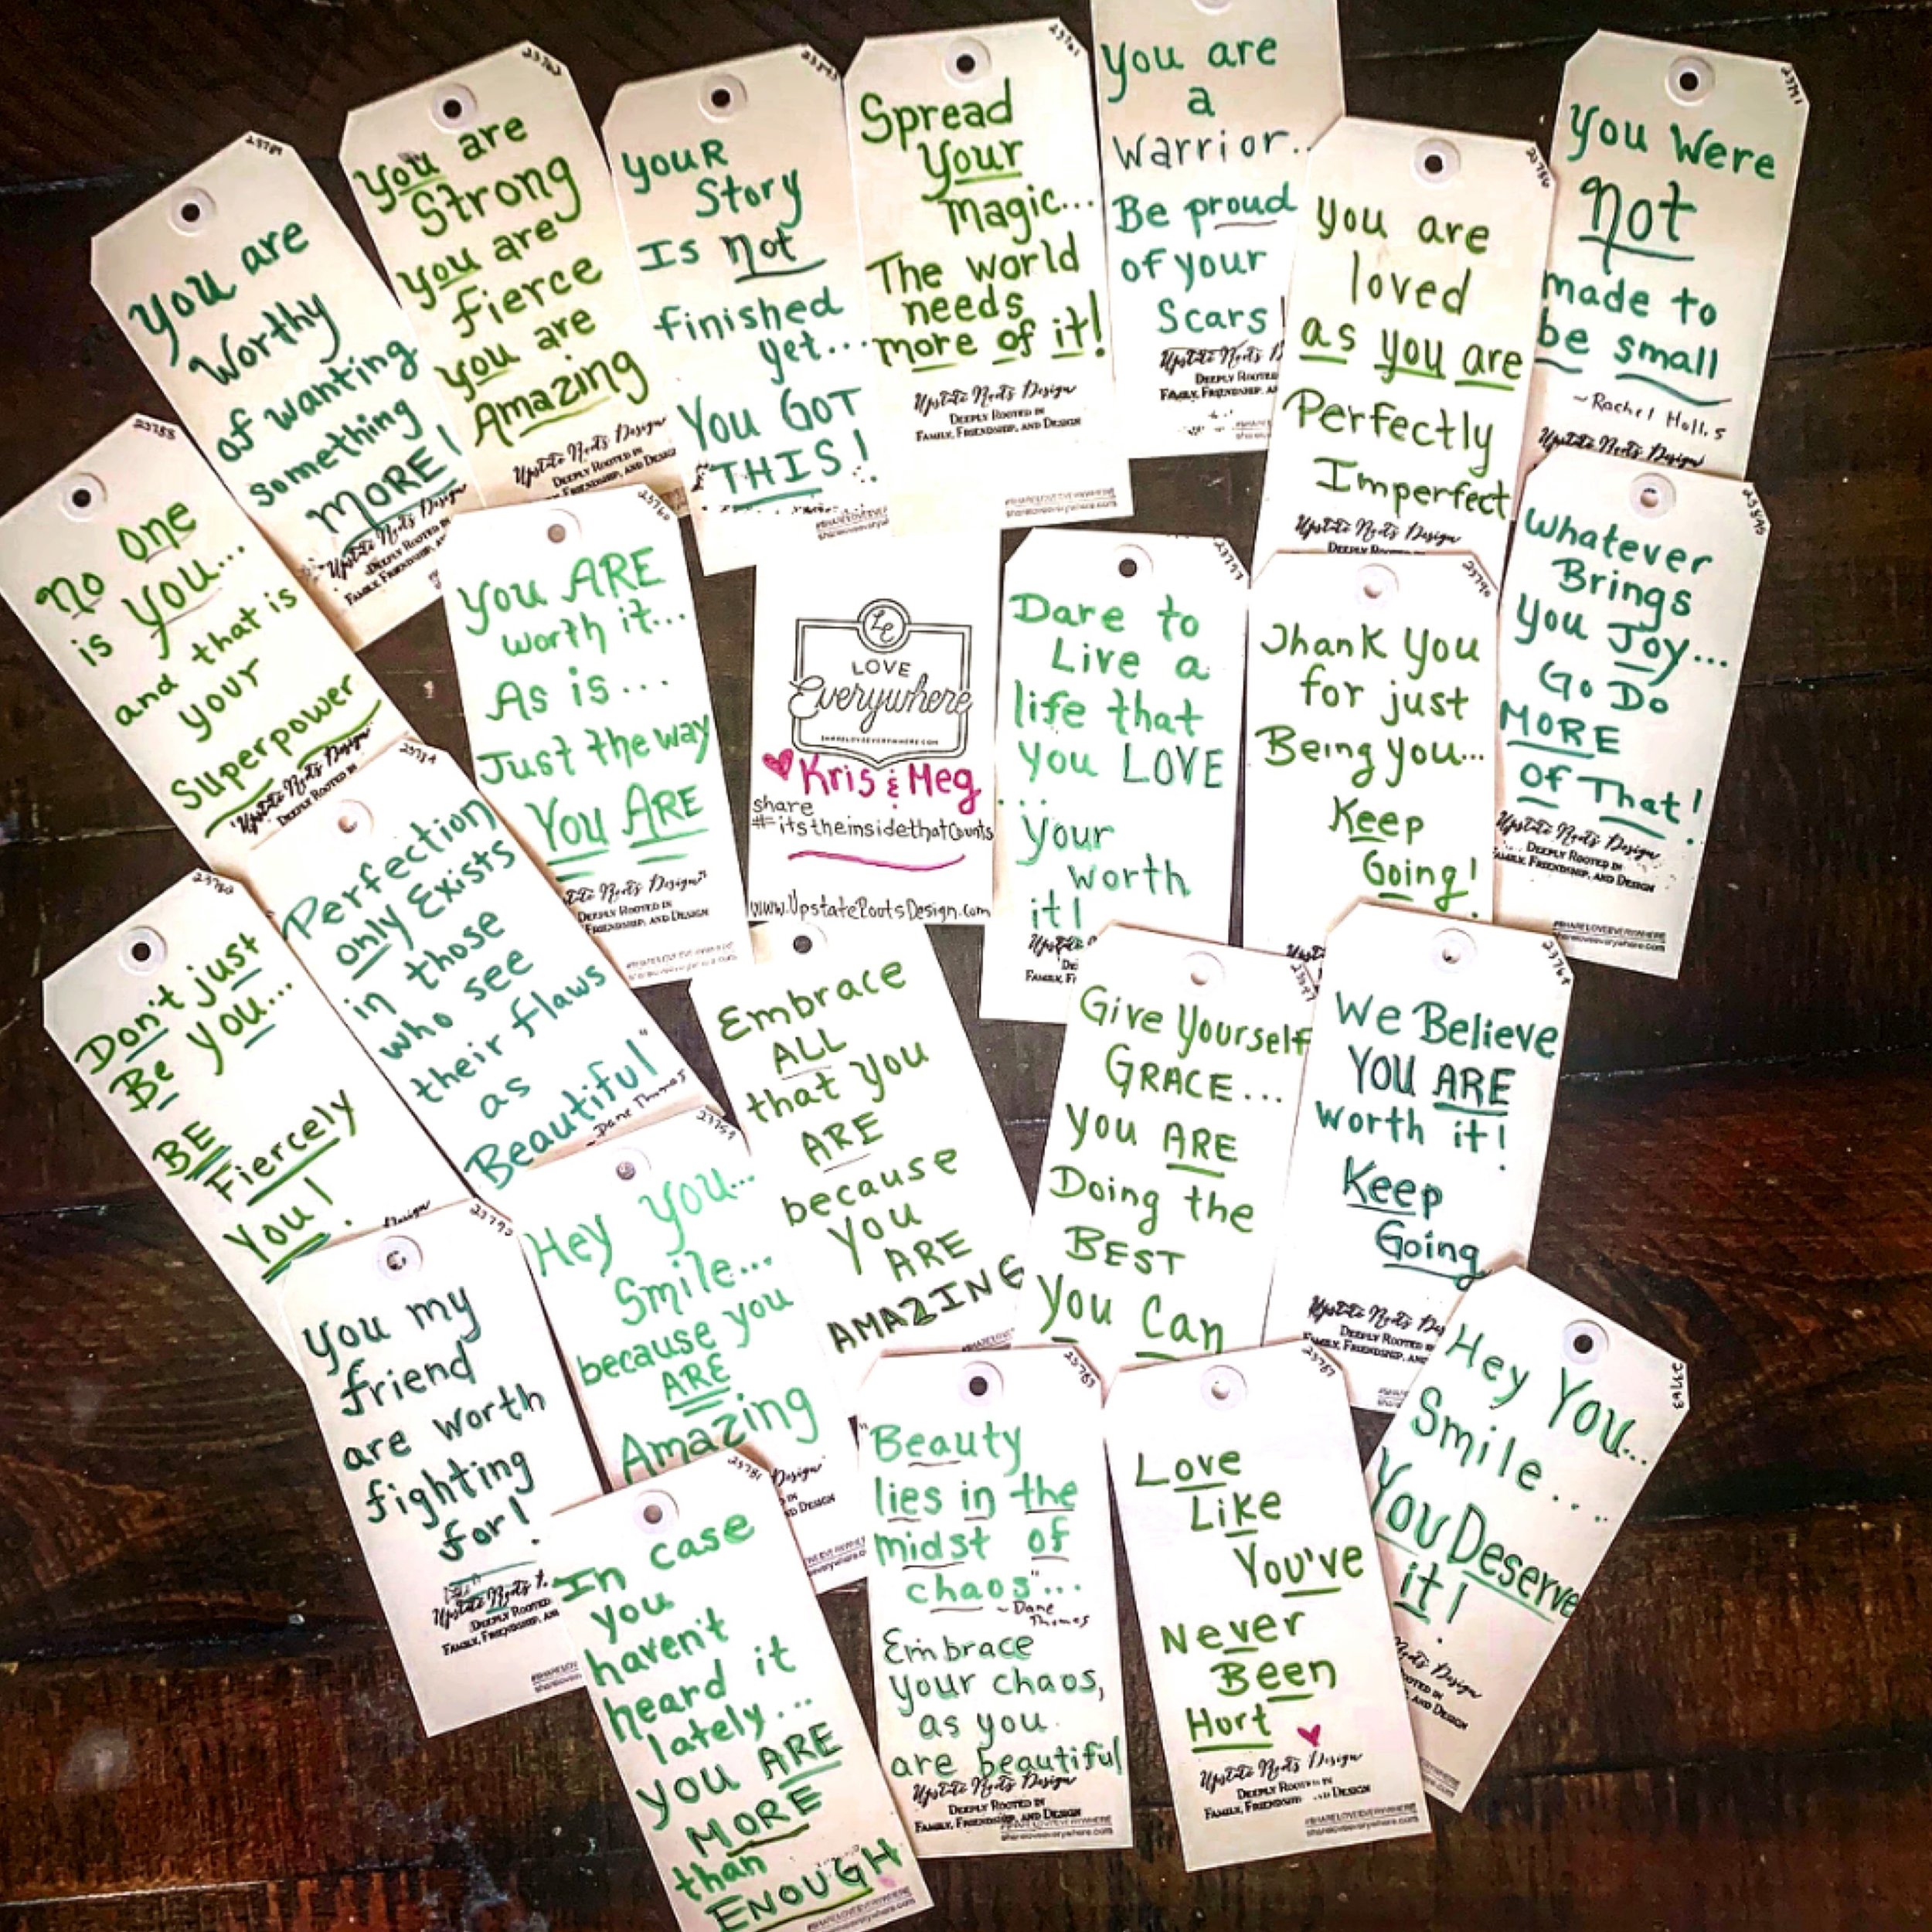 23789
You are
Worthy
of wanting
something
MORE!
Upstate Roots Design
DEEPLY ROOTED IN
FAMILY, FRIENDSHIP, A
23762
You are
Strong
you are
fierce
you are
Amazing
Upstate Roots Design
DEEPLY ROOTED IN
FRIENDSHIP, AND DESIGN
YOUR
Story
Is Not
finished
yet...
You GOT
THIS!
23761
Spread
Your
magic...
The world
needs
more of it!
Upstate Roots Design
DEEPLY ROOTED IN
FAMILY, FRIENDSHIP, AND DESIGN
#SHARELOVEEVERYWHERE
shareloveeverywhere.com
You are
a
Warrior..
Be proud
of your
Scars!
Upstate Roots D
DEEPLY ROOTED
FAMILY, FRIENDSHIP, A
23786
You are
loved
as you are
Perfectly
Imperfect
Upstate Roots Design
DEEPLY ROOTED IN
23791
You Were
Not
made to
be small
~Rachel Hollis
Upstate Roots Design
23788
No One
is You...
and that is
your
Superpower
"Upstate Roots Design"
DEEPLY ROOTED IN
23760
You ARE
worth it...
As is...
Just the way
You ARE
Roots Design"
DEEPLY ROOTED IN
FRIENDSHIP, AND DESIGN
LE
LOVE
Everywhere
SHARELOVEEVERYWHERE.COM
Kris & Meg
share
#itstheinsidethatCounts
www.UpstateRootsDesign.com
23793
Dare to
Live a
life that
You LOVE
...
Your
worth
it!
23790
Thank You
for just
Being you...
Keep
Going!
Whatever
Brings
You Joy...
Go Do
MORE
Of That!
Upstate Roots Design
DEEPLY ROOTED IN
FAMILY, FRIENDSHIP, AND DESIGN
#SHARELOVEEVERYWHERE
shareloveeverywhere.com
Don't just
Be you...
BE
Fiercely
You!
Design
23784
Perfection
only Exists
in those
who see
their flaws
as
Beautiful"
~Dane Thomas
Embrace
ALL
that you
ARE
because
You
ARE
AMAZING
Give Yourself
GRACE...
You ARE
Doing the
BEST
You Can
23768
We Believe
YOU ARE
worth it!
Keep
Going
Upstate Roots Des
DEEPLY ROOTED
FAMILY, FRIENDSHIP, AND
23792
You my
friend
are worth
fighting
for!
Upstate Roots
DEEPLY ROOTED
FAMILY, FRIENDSHIP, AN
23759
Hey You...
Smile...
because you
ARE
Amazing
Design"
IN
AND DESIGN
23763
Hey You...
Smile....
You Deserve
it!
Roots Design
ROOTED IN
AND DESIGN
23781
In case
you
haven't
heard it
lately...
you ARE
MORE
than
ENOUGH
#SHARELOVEEVERYWHERE
shareloveeverywhere.com
23783
"Beauty
lies in the
midst of
chaos"...
~Dane
Thomas
Embrace
your chaos,
as you
are beautiful
Upstate Roots Design
DEEPLY ROOTED IN
FAMILY, FRIENDSHIP, AND DESIGN
#SHARELOVEEVERYWHERE
shareloveeverywhere.com
23787
Love
Like
You've
Never
Been
Hurt
Upstate Roots Design
DEEPLY ROOTED IN
FAMILY, FRIENDSHIP AND DESIGN
#SHARELOVEEVERYWHERE
shareloveeverywhere.com